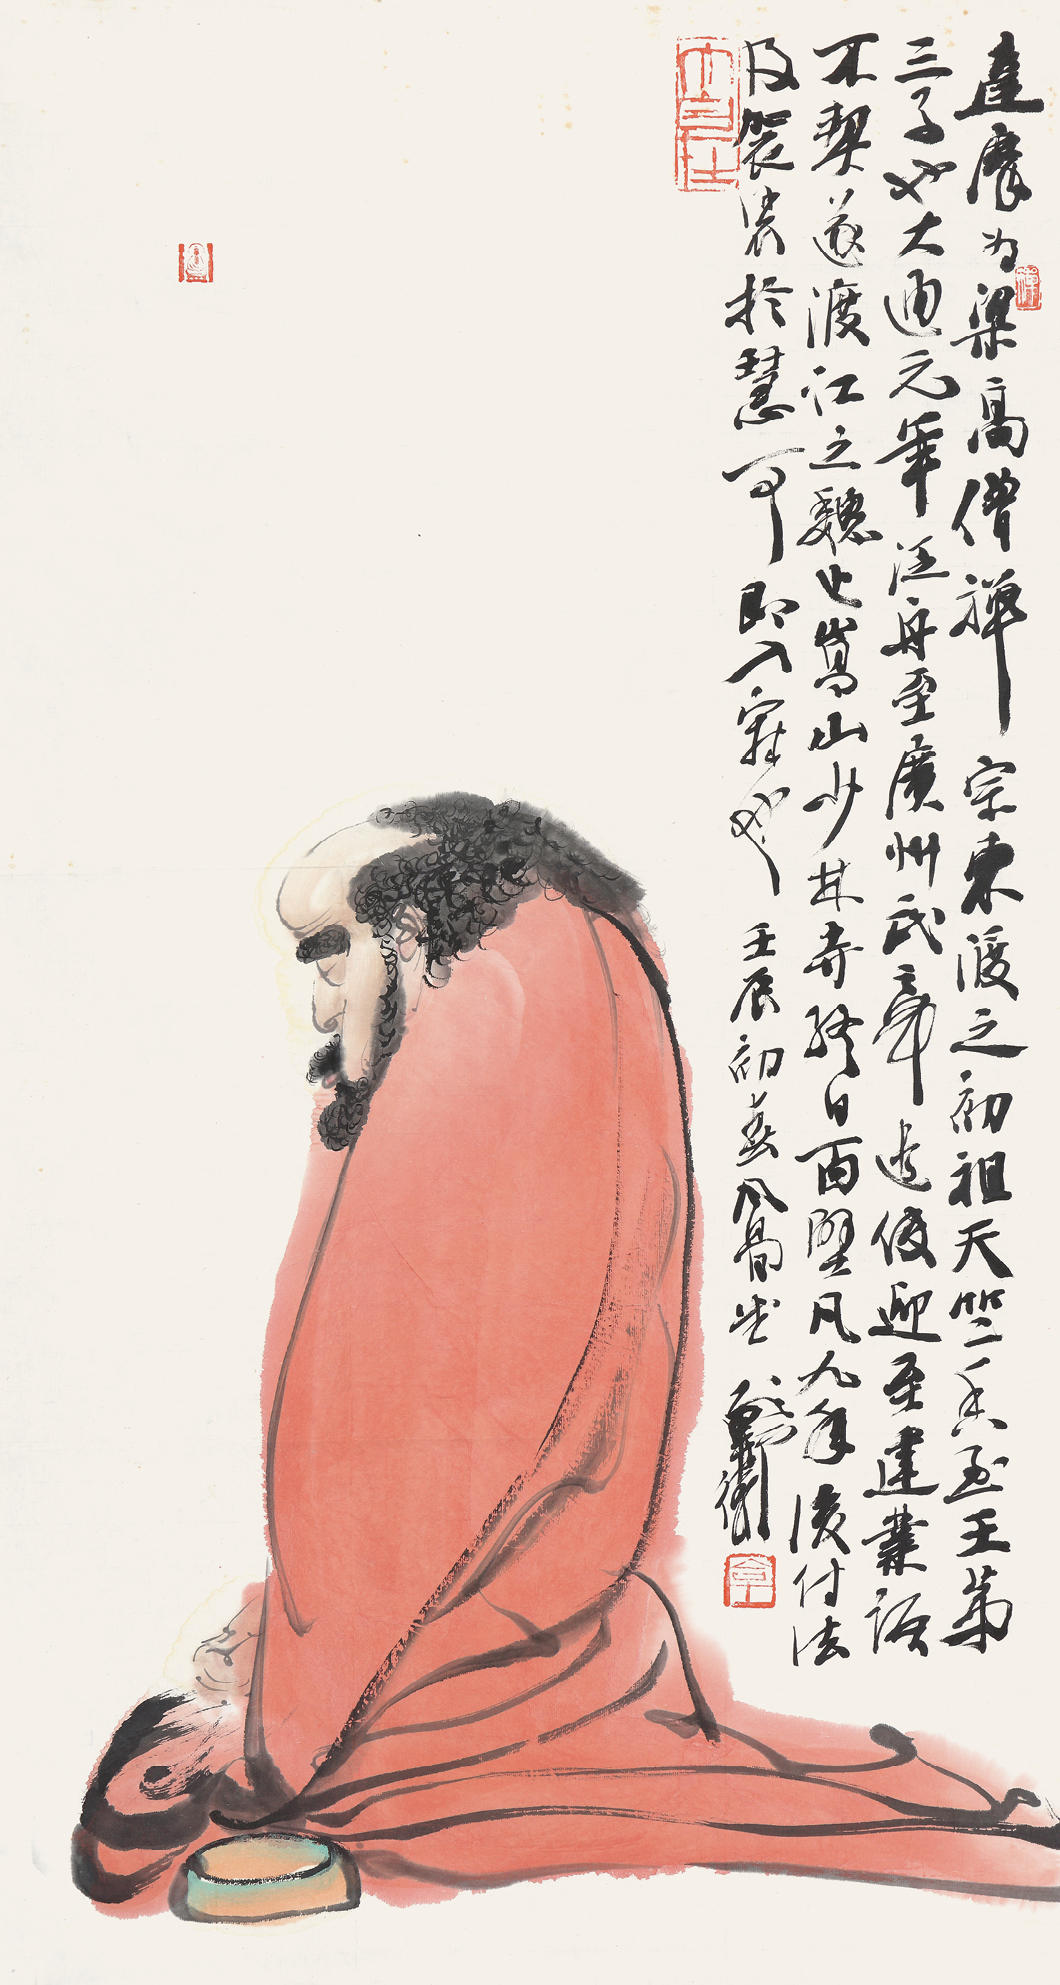 達摩为梁高僧禅宗東渡之初祖天竺香至王第
三子也大通元年泛舟至廣州武帝遣使迎至建業語
不契遂渡江之魏止嵩山少林寺終日面壁凡九年後付法
及袈裟於慧可即入寂也壬辰初春風骨堂戴衛